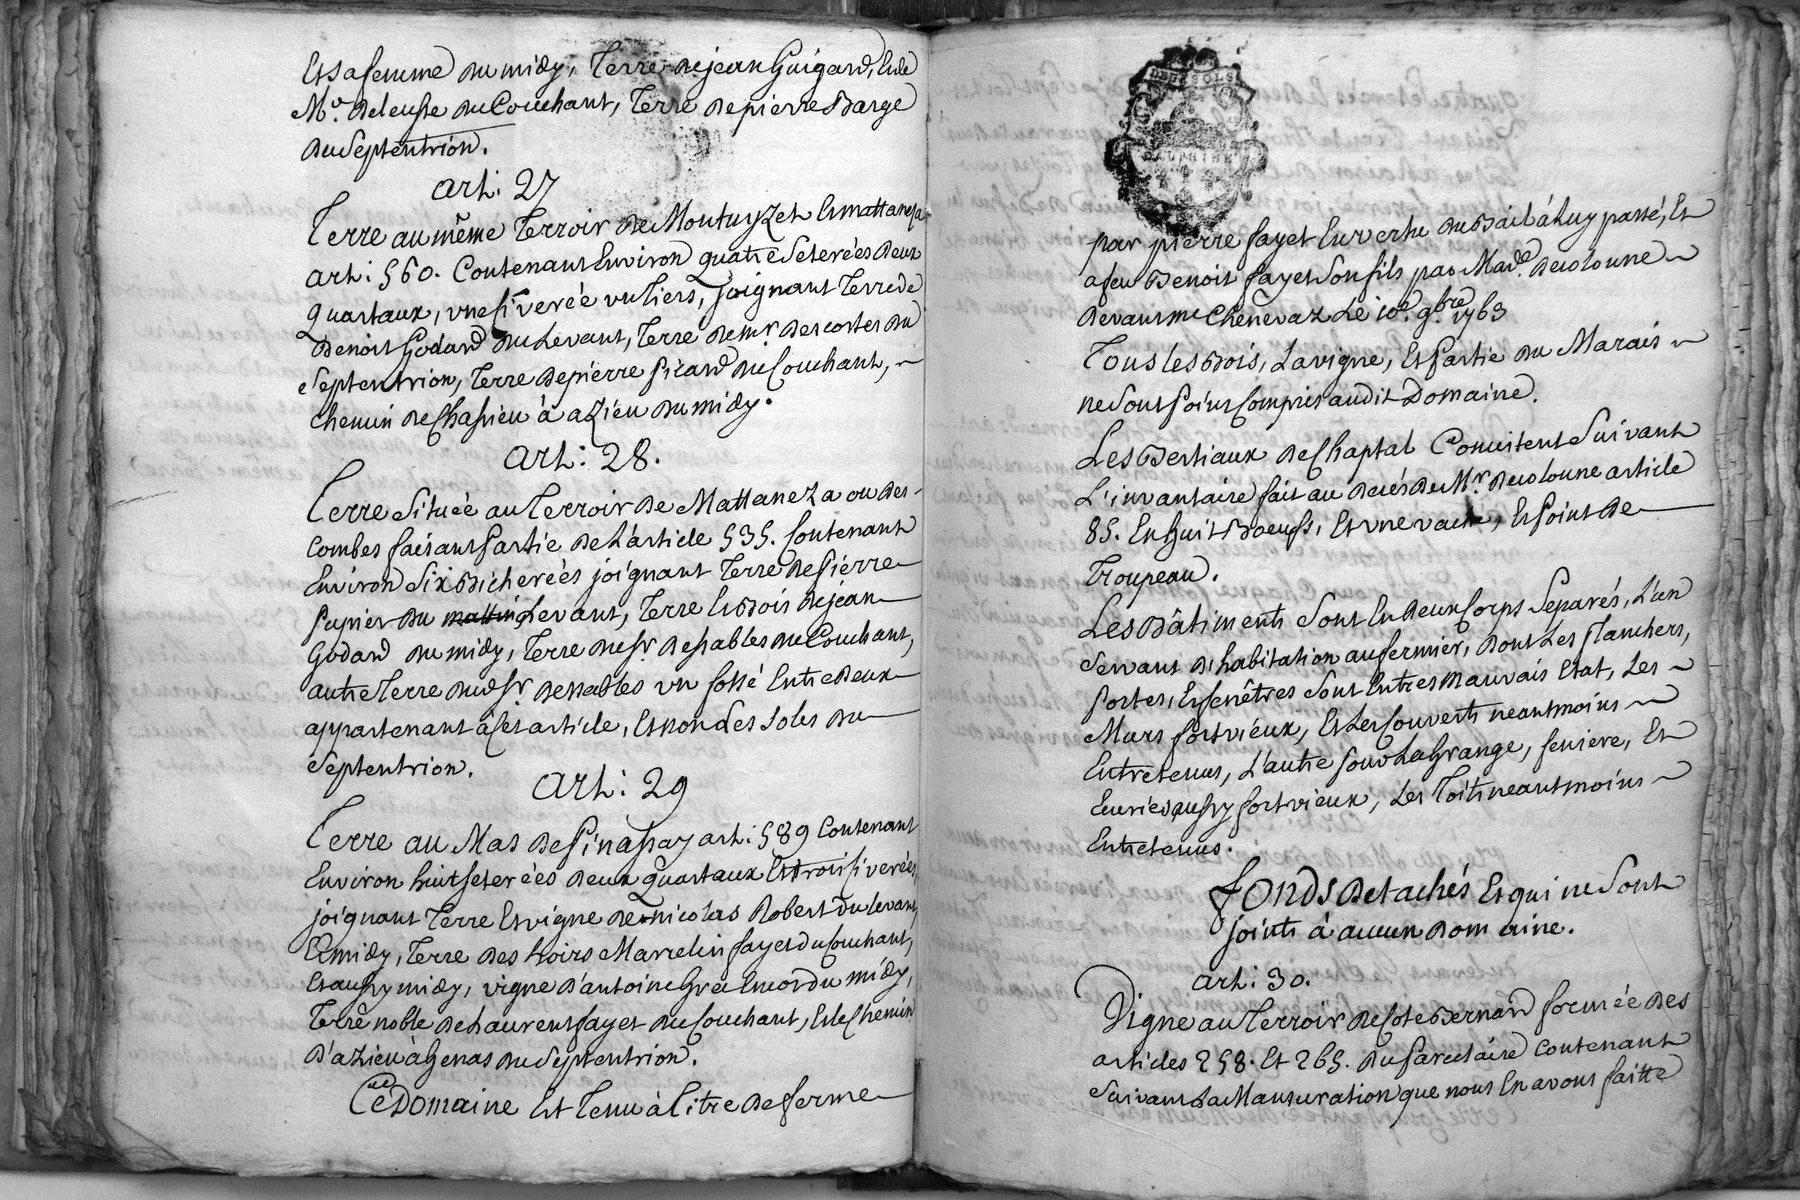 Et sa femme du midy, Terre de jean Guigard, Et de
Mr. Deleusse du Couchant, Terre de pierre Barge
du Septentrion.
art: 27
Terre au même Terroir de Montuyzet Et mattaneza
art: 560. Contenant Environ quatre Seterées deux
quartaux, une siverée un tiers, joignant Terre de
Benoit Godard du Levant, Terre de mr. Descostes du
Septentrion, Terre de pierre Picard du Couchant,
chemin de Chassieu à azieu du midy.
art: 28.
Terre Située au Terroir de Mattaneza ou des
Combes faisant partie de L'article 535. Contenant
Environ Six Bicherées joignant Terre de Pierre
du Levant, Terre Et Bois de jean
Godard du midy, Terre du Sr. Desables du Couchant,
autre Terre dud. Sr. Desables un fossé Entre deux
appartenant à Cet article, Et non des Soles du
Septentrion.
art: 29
Terre au Mas de Pinassay art: 589 Contenant
Environ huit seterées deux quartaux Et trois siverées,
joignant Terre Et vigne de nicolas Robert du levant,
Et midy, Terre des hoirs Marcelin fayet du Couchant,
Et aussy midy, vigne d'antoine Encor du midy,
Terre noble de Laurent fayet du Couchant, Et le Chemin
d'azieu à Genas du Septentrion.
Ce Domaine Est Tenu à Titre de ferme
DEUX SOLS
DAUPHINE
par pierre fayet En vertu du Bail à Luy passé, Et
a feu Benoit fayet Son fils par Made. Decoloune
devant me Chenevaz Le 10e. 9bre. 1763
Tous les Bois, La vigne, Et Partie du Marais
ne Sont Point Compris audit Domaine.
Les Bestiaux de Chaptal Concistent Suivant
L'invantaire fait au decés de Mr. Decoloune article
85. En huit Boeufs, Et une vache, Et Point de
Troupeau.
Les Bâtiments Sont En deux Corps Separés, L'un
Servant d'habitation au fermier, dont Les Planchers,
Portes, Et fenêtres Sont En tres mauvais Etat, Les
Murs fort vieux, Et Les Couverts neantmoins
Entretenus, L'autre pour La Grange, feniere, Et
Ecuries aussy fort vieux, Les Toits neantmoins
Entretenus.
fonds Detachés Et qui ne Sont
joints à aucun Domaine.
art: 30.
Vigne au Terroir de Cote Bernard formée des
articles 258. Et 265. du Parcelaire Contenant
Suivant La Mansuration que nous En avons faitte